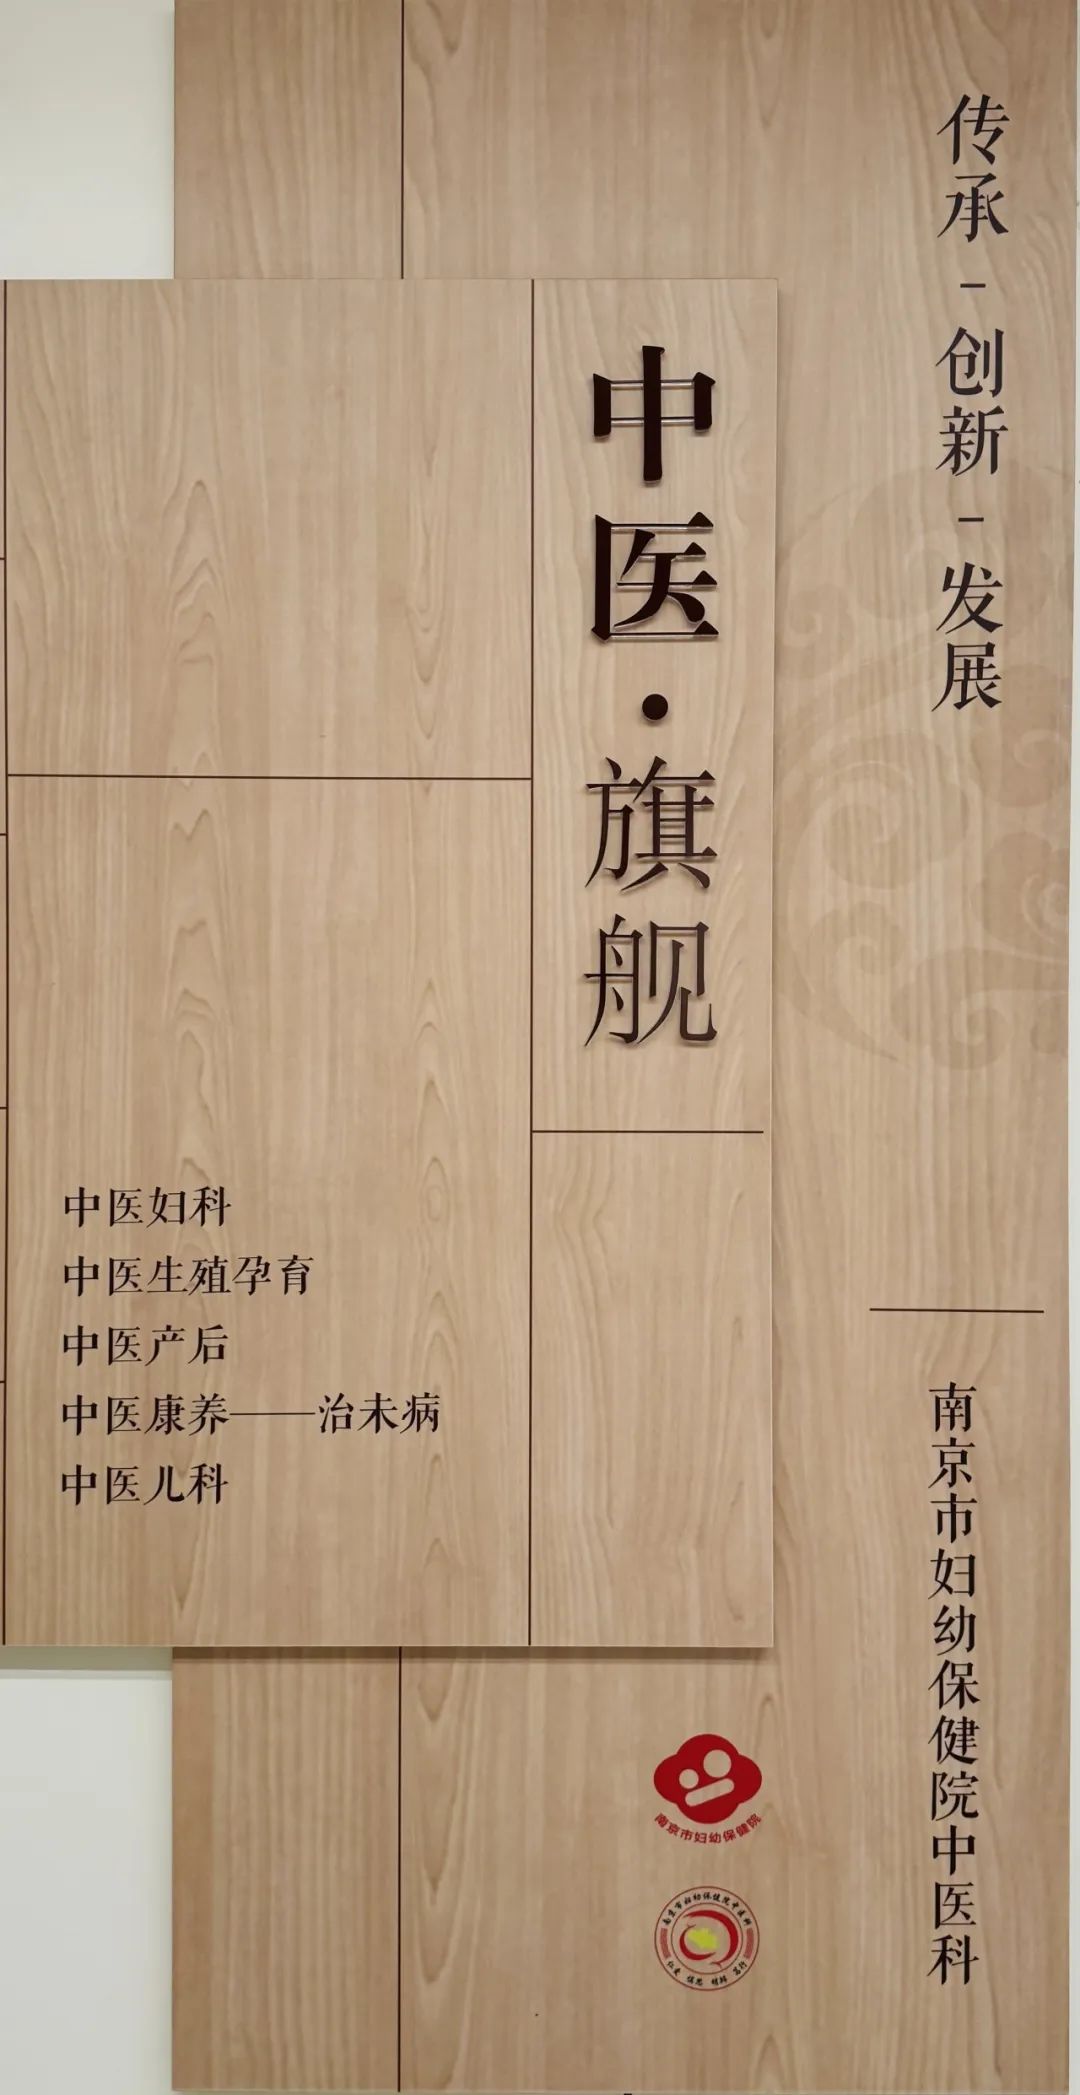 传承-创新-发展
中医·旗舰
中医妇科
中医生殖孕育
中医产后
中医康养——治未病
中医儿科
南京市妇幼保健院中医科
南京市妇幼保健院
南京市妇幼保健院中医科